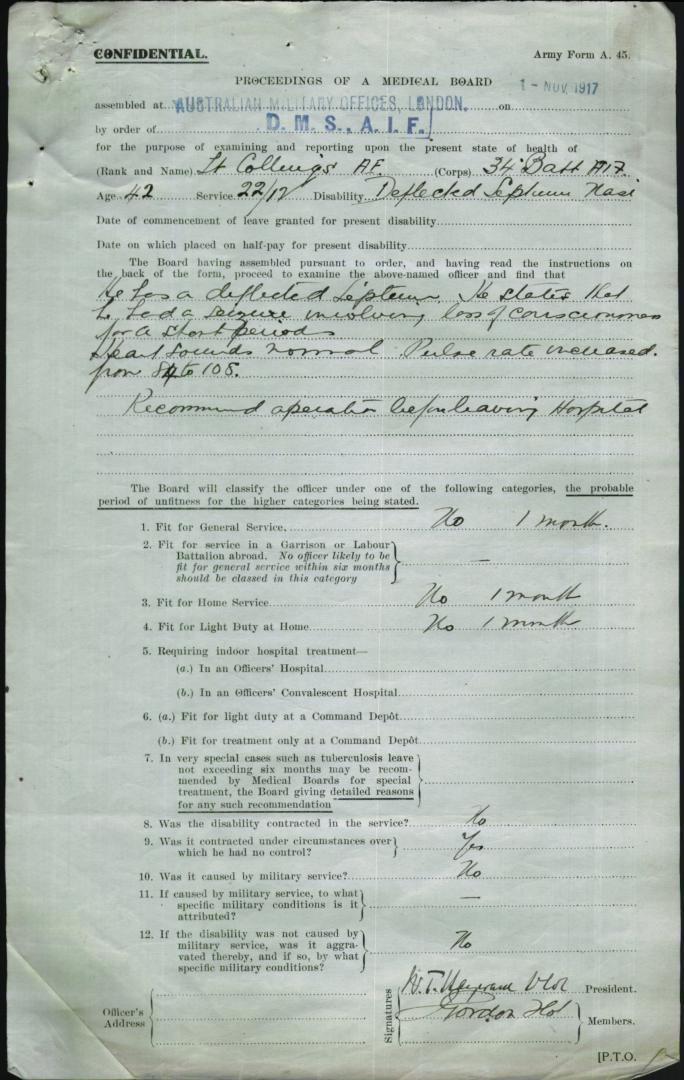 CONFIDENTIAL.
Army Form A. 45.
PROCEEDINGS OF A MEDICAL BOARD
1 - NOV 1917
assembled at AUSTRALIAN MILITARY OFFICES, LONDON. on
by order of D. M. S., A. I. F.
for the purpose of examining and reporting upon the present state of health of
(Rank and Name) Lt Collings A.F. (Corps) 34 Batt AIF
Age 42 Service 22/12 Disability Deflected Septum Nasi
Date of commencement of leave granted for present disability
Date on which placed on half-pay for present disability
The Board having assembled pursuant to order, and having read the instructions on
the back of the form, proceed to examine the above-named officer and find that
He has a deflected Septum. He states that
he had a seizure involving loss of consciousness
for a short periods
Heart sounds normal Pulse rate increased.
from 84 to 108.
Recommend operation before leaving Hospital
The Board will classify the officer under one of the following categories, the probable
period of unfitness for the higher categories being stated.
1. Fit for General Service, No 1 month.
2. Fit for service in a Garrison or Labour
Battalion abroad. No officer likely to be
fit for general service within six months
should be classed in this category —
3. Fit for Home Service No 1 month
4. Fit for Light Duty at Home No 1 month
5. Requiring indoor hospital treatment—
(a.) In an Officers' Hospital
(b.) In an Officers' Convalescent Hospital
6. (a.) Fit for light duty at a Command Depôt
(b.) Fit for treatment only at a Command Depôt
7. In very special cases such as tuberculosis leave
not exceeding six months may be recom-
mended by Medical Boards for special
treatment, the Board giving detailed reasons
for any such recommendation
8. Was the disability contracted in the service? No
9. Was it contracted under circumstances over
which he had no control? Yes
10. Was it caused by military service? No
11. If caused by military service, to what
specific military conditions is it
attributed? —
12. If the disability was not caused by
military service, was it aggra-
vated thereby, and if so, by what
specific military conditions? No
Officer's
Address
Signatures
President.
Gordon
Members.
[P.T.O.